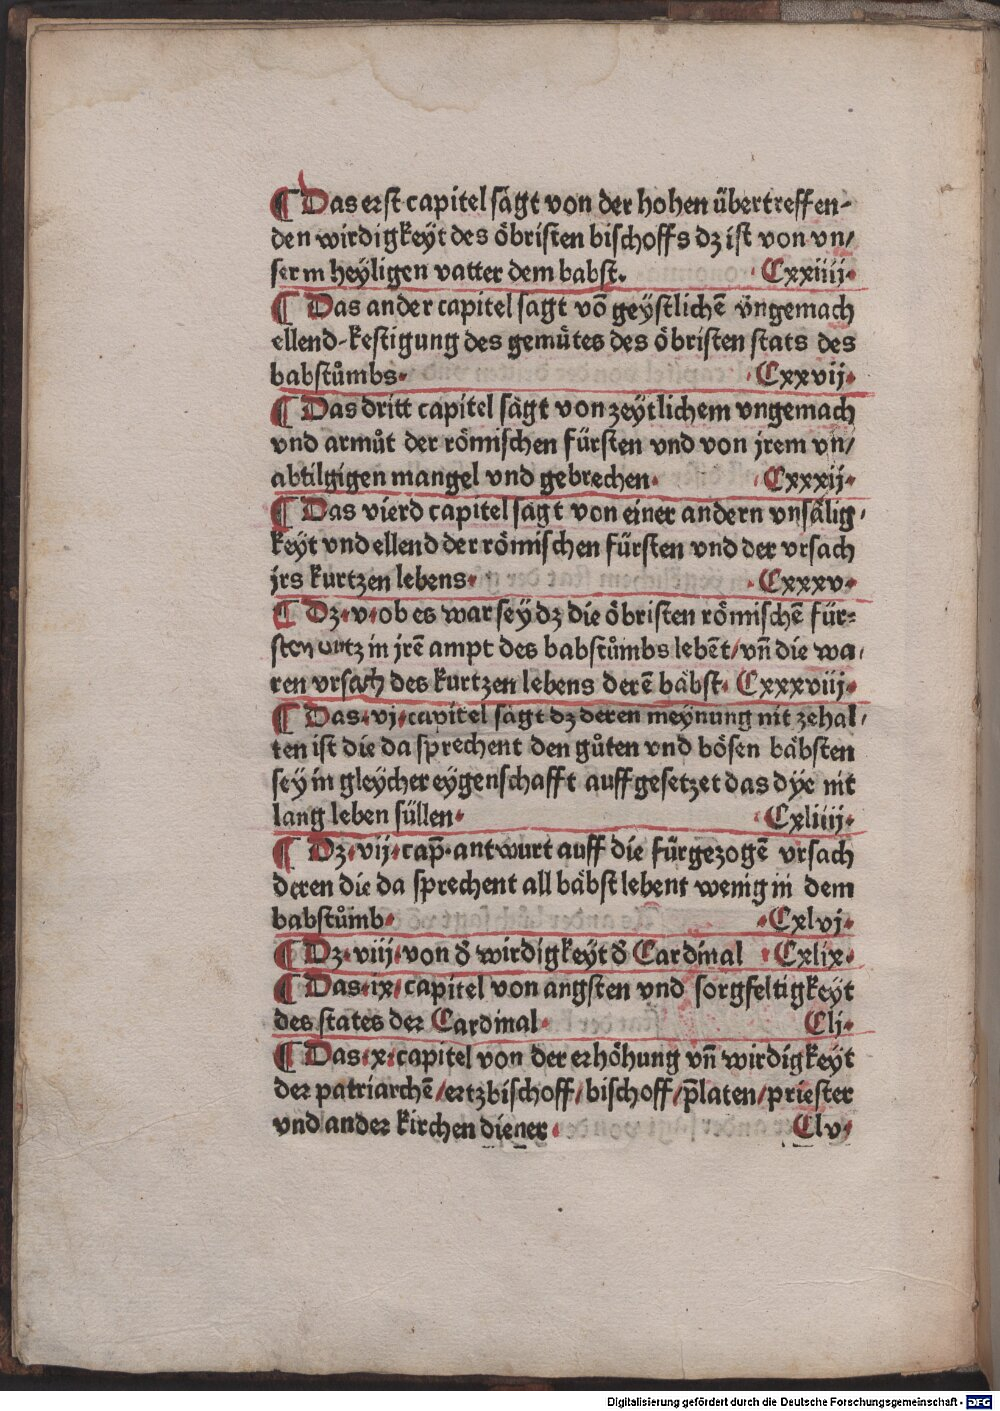 ¶ Das erst capitel sagt von der hohen übertreffen-
den wirdigkeÿt des öbristen bischoffs dz ist von vn/
serm heÿligen vatter dem babst. ·Cxxiiii·
¶ Das ander capitel sagt võ geÿstlichẽ vngemach
ellend-kestigung des gemůtes des öbristen stats des
babstůmbs· ·Cxxvij·
¶ Das dritt capitel sagt von zeÿtlichem vngemach
vnd armůt der römischen fürsten vnd von jrem vn/
abtilgigen mangel vnd gebrechen· ·Cxxxij·
¶ Das vierd capitel sagt von einer andern vnsälig/
keÿt vnd ellend der römischen fürsten vnd der vrsach
jrs kurtzen lebens· ·Cxxxv·
¶ Dz·v·ob es war seÿ dz die öbristen römischẽ für-
sten kurtz in jrẽ ampt des babstůmbs lebẽt/vñ die wa/
ren vrsach des kurtzen lebens derẽ bäbst· Cxxxviij·
¶ Das·vj·capitel sagt dz deren meÿnung nit zehal/
ten ist die da sprechent den gůten vnd bösen bäbsten
seÿ in gleÿcher eÿgenschafft auffgesetzet das dÿe nit
lang leben süllen· ·Cxliiij·
¶ Dz·vij·cap̃·antwurt auff die fürgezogẽ vrsach
deren die da sprechent all bäbst lebent wenig in dem
babstůmb· ·Cxlvj·
¶ Dz·viij·von d̃ wirdigkeÿt d̃ Cardinal ·Cxlix·
¶ Das·ix·capitel von angsten vnd sorgfeltigkeÿt
des states der Cardinal· Clj·
¶ Das·x·capitel von der erhöhung vñ wirdigkeÿt
der patriarchẽ/ertzbischoff/bischoff/p̃laten/priester
vnd ander kirchen diener· Clv·
Digitalisierung gefördert durch die Deutsche Forschungsgemeinschaft - DFG